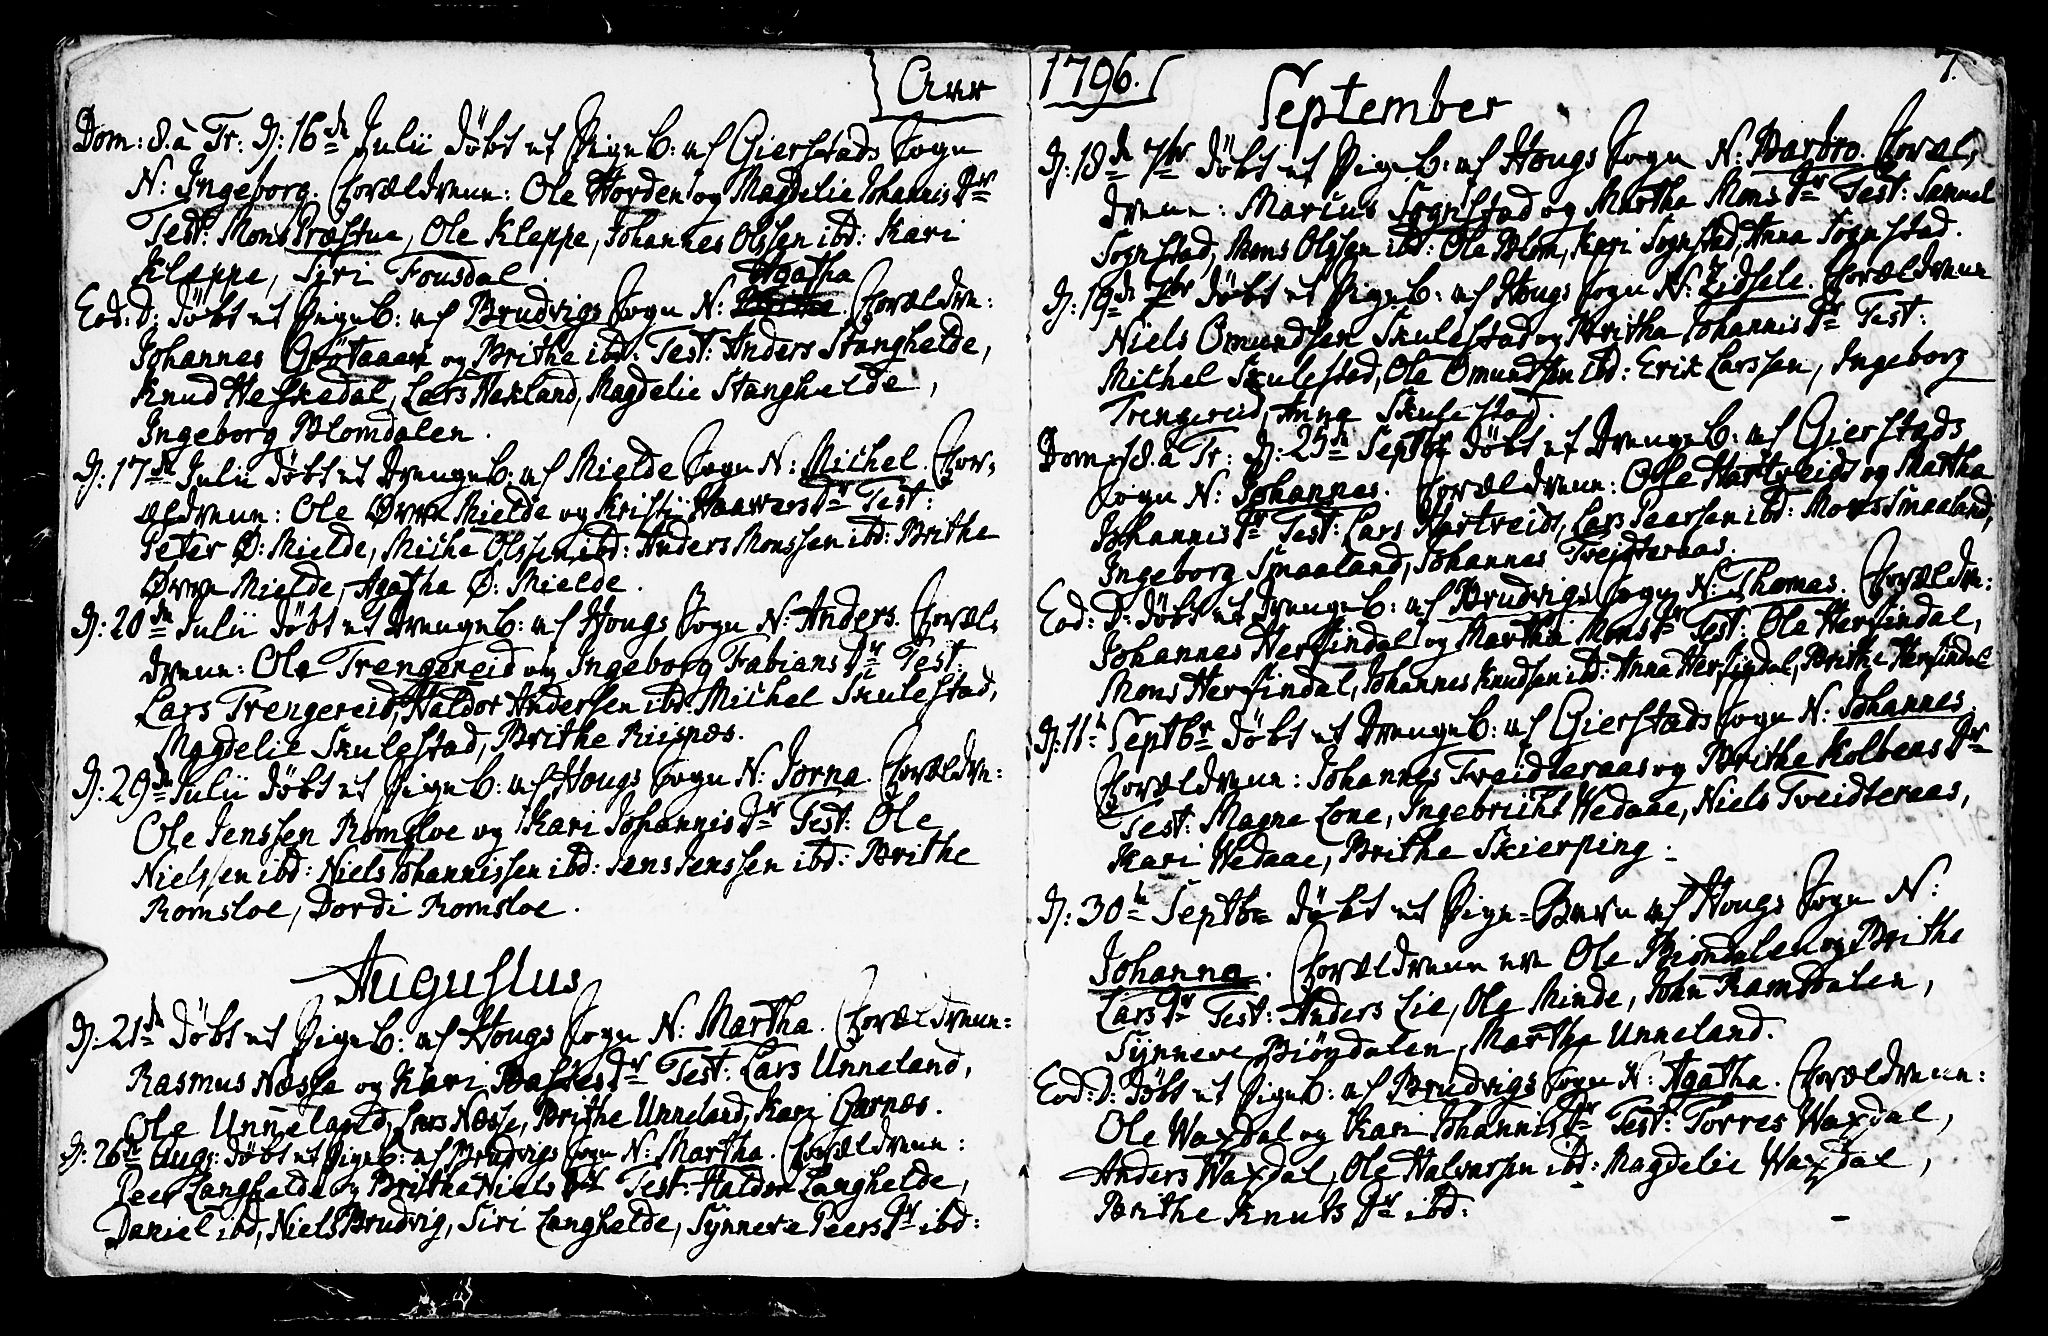 Aar
Dom: 8. à Tr: D: 16de Julii døbt et PigeB: af Gierstads Sogn
N: Ingeborg. Forældrene: Ole Horden og Magdelie Johannis Dr
Test: Mons Præstue, Ole Kleppe, Johannes Olssen ibd: Kari
Kleppe, Syri Fousdal.
Agatha
Eod: D: døbt et PigeB: af Brudvigs Sogn N: Forældre:
Johannes og Brithe ibd: Test: Anders Stanghelde,
Knud Heskedal, Lars Hekland, Magdelie Stanghelde,
Ingeborg Blomdalen.
D: 17de Julii døbt et DrengeB: af Mielde Sogn N: Michel. For-
ældrene: Ole Øvre Mielde og Kristi Haavers Dr Test:
Peter Ø: Mielde, Miche Olssen ibd: Anders Monssen ibd: Brithe
Øvre Mielde, Agatha Ø: Mielde.
D: 20de Julii døbt et DrengeB: af Hougs Sogn N: Anders. Foræl-
drene: Ole Trengereid og Ingeborg Fabians Dr Test:
Lars Trengereid, Haldor Andersen ibd: Michel Skulestad,
Magdelie Skulestad, Brithe Riispæs.
D: 29de Julii døbt et PigeB: af Hougs Sogn N: Jorna. Forældre:
Ole Jenssen Romsloe og Kari Johannis Dr Test: Ole
Nielssen ibd: Niels Johannissen ibd: Jens Jenssen ibd: Brithe
Romsloe, Dordi Romsloe.
Augustus
D: 21de døbt et PigeB: af Hougs Sogn N: Martha. Forældrene:
Rasmus Næsse og Kari Dr Test: Lars Unneland,
Ole Unneland, Lars Næsse, Brithe Unneland, Kari Garnæs.
D: 26de Aug: døbt et PigeB: af Brudvigs Sogn N: Martha. Forældrene:
Peer Langhelde og Brithe Niels Dr Test: Haldor Langhelde,
Daniel ibd, Niels Brudvig, Siri Langhelde, Synneve Peers Dr ibd:
1796.
7.
September
D: 18de 7br døbt et PigeB: af Hougs Sogn N: Barbro. Foræl-
drene: Marius Sognstad og Martha Mons Dr Test: Samuel
Sognstad, Mons Olssen ibd: Ole Blom, Kari Sognstad, Anna Sognstad.
D: 19de 7br døbt et PigeB: af Hougs Sogn N: Zidsele. Forældrene
Niels Omundsen Skulestad og Brithe Johannis Dr Test:
Michel Skulestad, Ole Omundsen ibd: Erik Larssen, Ingeborg
Trengereid, Anna Skulestad.
Dom: 18. à Tr: D: 25de Septbr døbt et DrengeB: af Gierstads
Sogn N: Johannes. Forældrene: Ole Hartveidt og Martha
Johannis Dr Test: Lars Hartveidt, Lars Peersen ibd: Mons Smaaland,
Ingeborg Smaaland, Johannes Tveidteraas.
Eod: D: døbt et DrengeB: af Brudvigs Sogn N: Thomas. Forældre:
Johannes Herfindal og Martha Mons Dr Test: Ole Herfindal,
Mons Herfindal, Johannes Knudsen ibd: Anna Herfindal, Brithe Herfindal
D: 11te Septbr døbt et DrengeB: af Gierstads Sogn N: Johannes.
Forældrene: Johannes Tveidteraas og Brithe Kolbens Dr
Test: Magne Lone, Ingebricht Wedaae, Niels Tveidteraas,
Kari Wedaae, Brithe Skierping.
D: 30te Septbr døbt et Pige-Barn af Hougs Sogn N:
Johanna. Forældrene ere Ole Biøndalen og Brithe
Lars Dr Test: Anders Lie, Ole Minde, John Ramsdalen,
Synneve Biøndalen, Marthe Unneland.
Eod: D: døbt et PigeB: af Brudvigs Sogn N: Agatha. Forældrene:
Ole Waxdal og Kari Johannis Dr Test: Torres Waxdal,
Anders Waxdal, Ole Halvorsen ibd: Magdelie Waxdal,
Brithe Knuts Dr ibd: